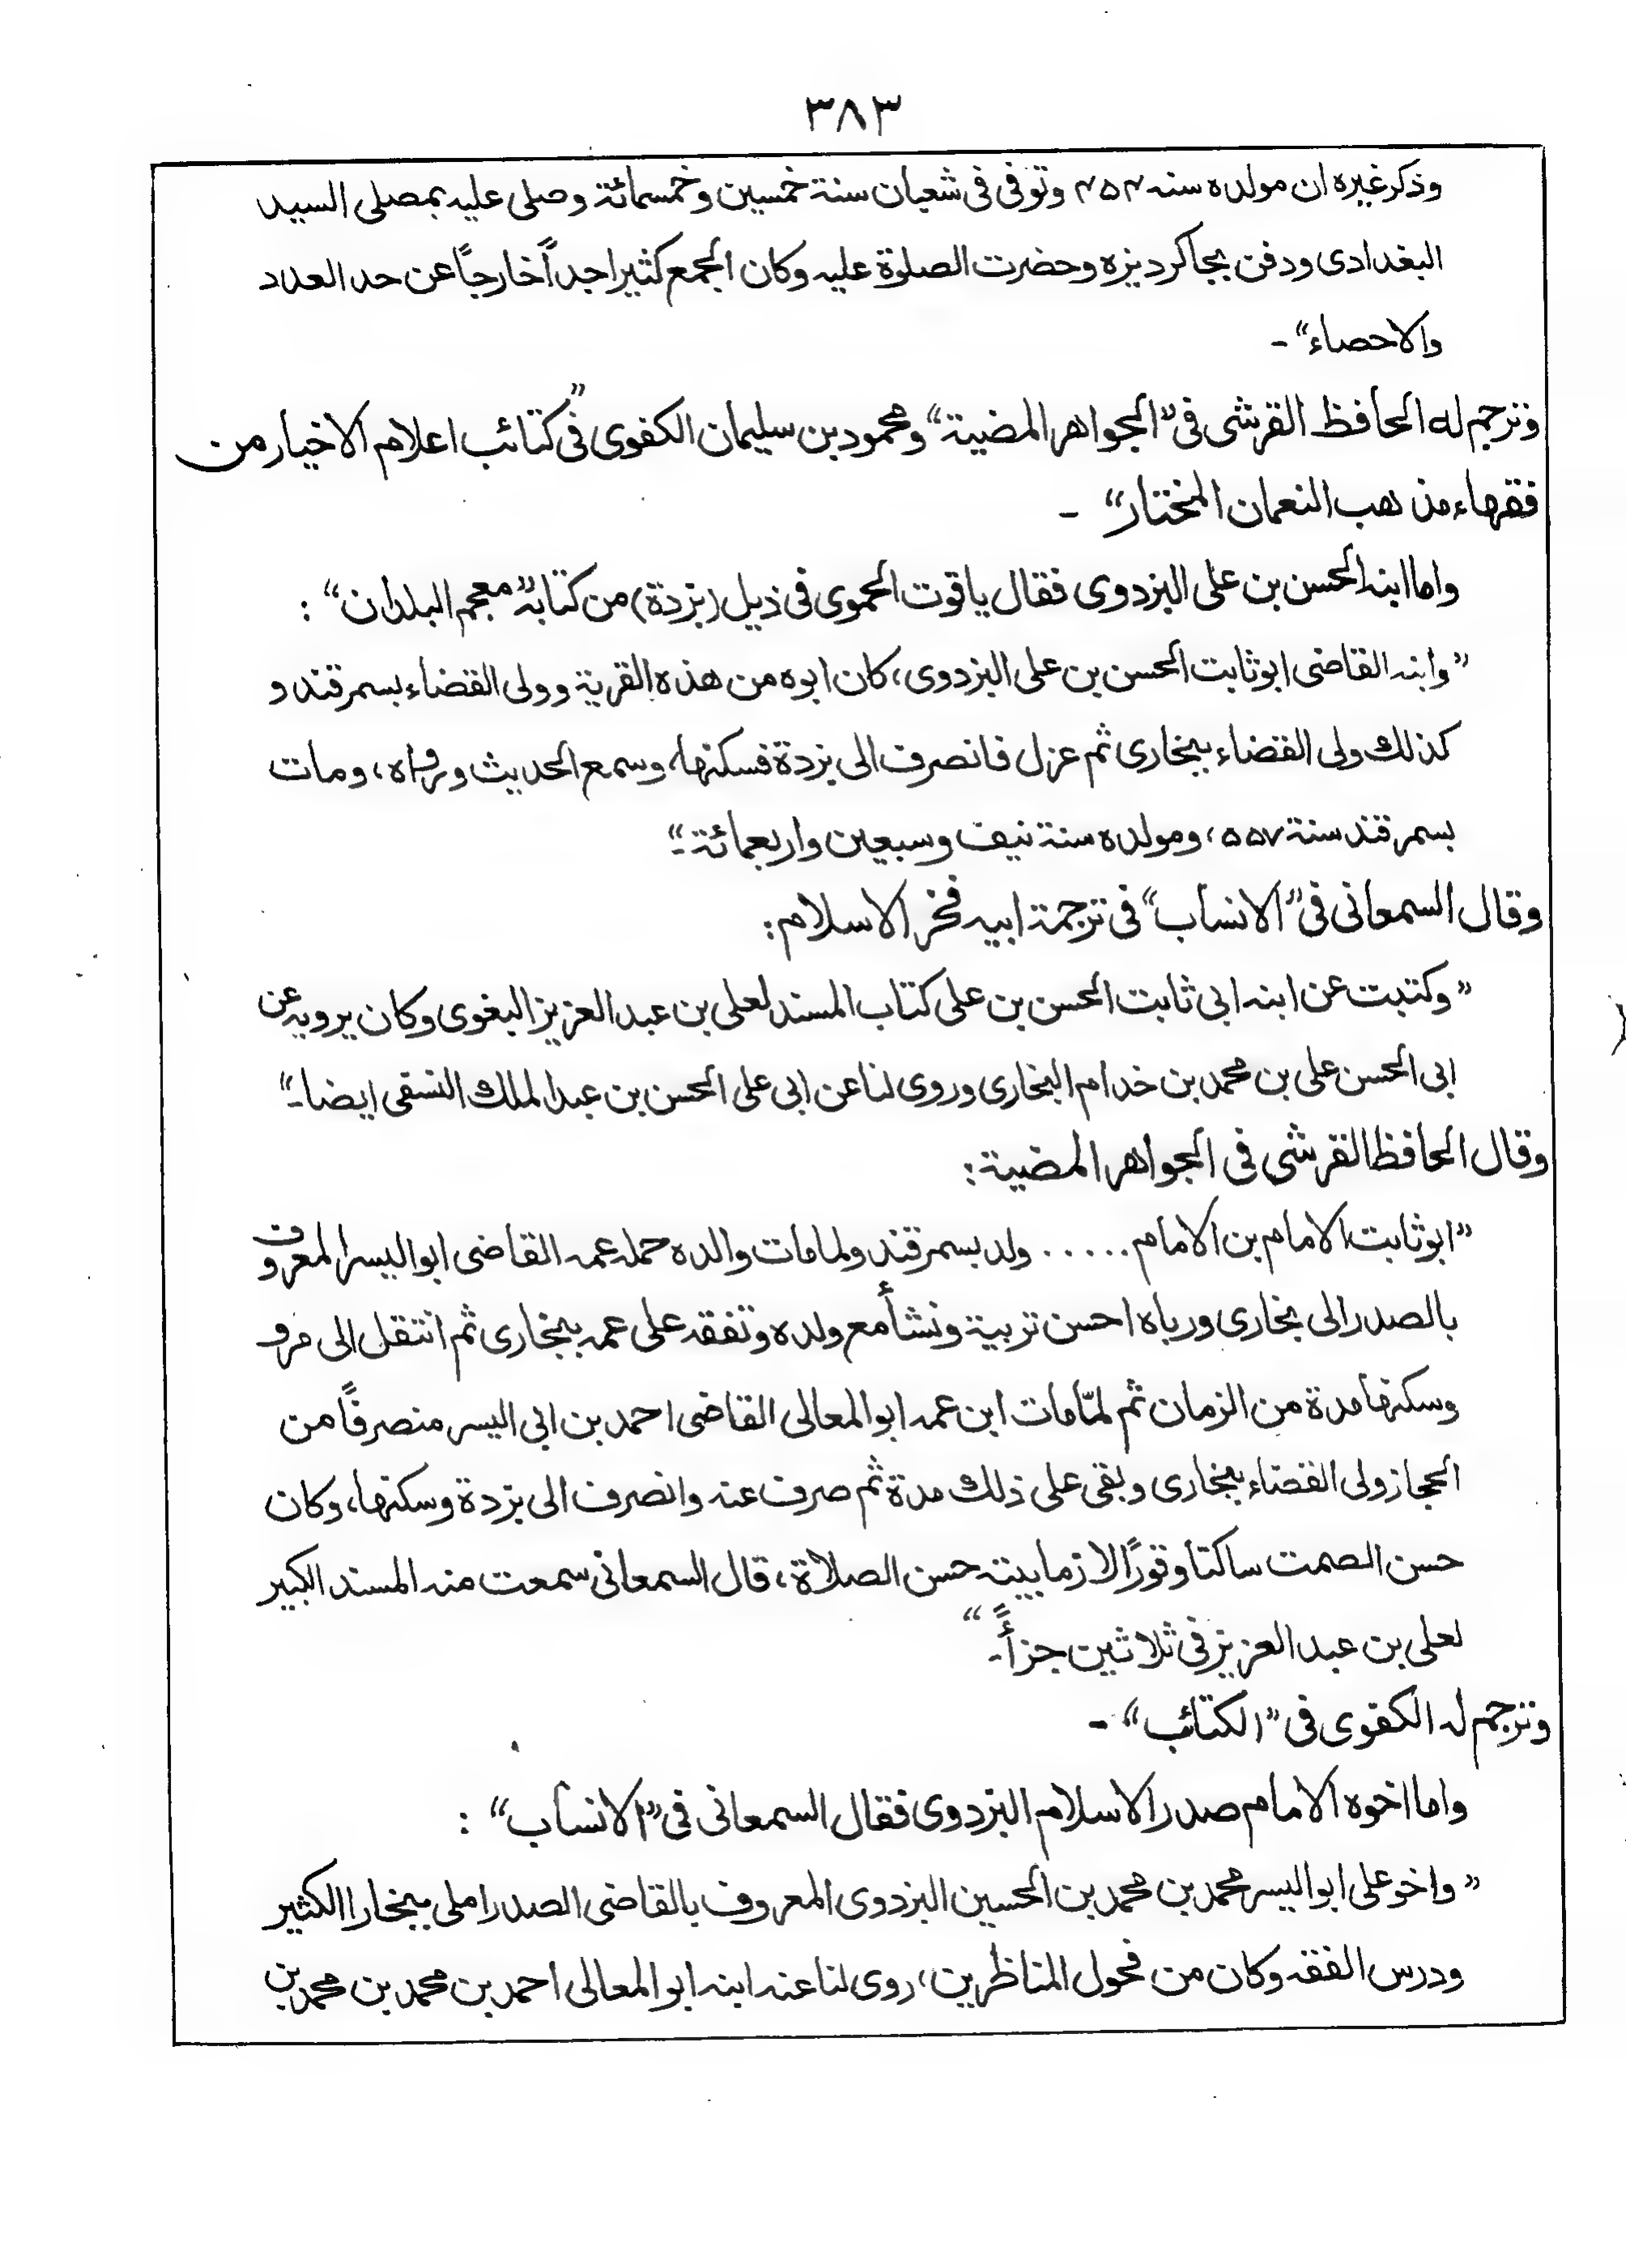 ٣٨٣
وذكر غيره ان مولده سنه ۴۵۴ وتوفى فى شعبان سنة خمسين وخمسمائة وصلى عليه بمصلى السيد
البغدادى ودفن بجاكرديزه وحضرت الصلوة عليه وكان الجمع كثيرا جداً خارجاً عن حد العدد
والاحصاء“ -
وترجم له الحافظ القرشى فى ”الجواهر المضية“ ومحمود بن سليمان الكفوى فى ”كتائب اعلام الاخيار من
فقهاء مذهب النعمان المختار“ -
واما ابنه الحسن بن على البزدوى فقال ياقوت الحموى فى ذيل (بزدة) من كتابه ”معجم البلدان“ :
”وابنه القاضى ابو ثابت الحسن بن على البزدوى، كان ابوه من هذه القرية وولى القضاء بسمرقند و
كذلك ولى القضاء ببخارى ثم عزل فانصرف الى بزدة فسكنها، وسمع الحديث ورواه، ومات
بسمرقند سنة ۵۵۷، ومولده سنة نيف وسبعين واربعمائة -“
وقال السمعانى فى ”الانساب“ فى ترجمة ابيه فخر الاسلام:
”وكتبت عن ابنه ابى ثابت الحسن بن على كتاب المسند لعلى بن عبد العزيز البغوى وكان يرويه عن
ابى الحسن على بن محمد بن خدام البخارى وروى لنا عن ابى على الحسن بن عبد الملك النسقى ايضا-“
وقال الحافظ القرشى فى الجواهر المضية:
”ابو ثابت الامام بن الامام ..... ولد بسمرقند ولما مات والده حمله عمه القاضى ابو اليسر المعروف
بالصدر الى بخارى ورباه احسن تربية ونشأ مع ولده وتفقه على عمه ببخارى ثم انتقل الى مرو
وسكنها مدة من الزمان ثم لمّا مات ابن عمه ابو المعالى القاضى احمد بن ابى اليسر منصرفاً من
الحجاز ولى القضاء ببخارى وبقى على ذلك مدة ثم صرف عنه وانصرف الى بزدة وسكنها، وكان
حسن الصمت ساكتا وقوراً لازما بيته حسن الصلاة، قال السمعانى سمعت منه المسند الكبير
لعلى بن عبد العزيز فى ثلاثين جزأً-“
وترجم له الكفوى فى ”الكتائب“ -
واما اخوه الامام صدر الاسلام البزدوى فقال السمعانى فى ”الانساب“ :
”واخو على ابو اليسر محمد بن محمد بن الحسين البزدوى المعروف بالقاضى الصدر املى ببخارا الكثير
ودرس الفقه وكان من فحول المناظرين، روى لنا عنه ابنه ابو المعالى احمد بن محمد بن محمد بن